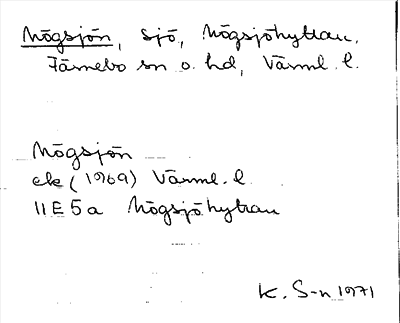 Högsjön, sjö, Högsjöhyttan,
Färnebo sn o. hd, Värml. l.
Högsjön
ek (1969) Värml. l.
11E5a Högsjöhyttan
K. S-n 1971